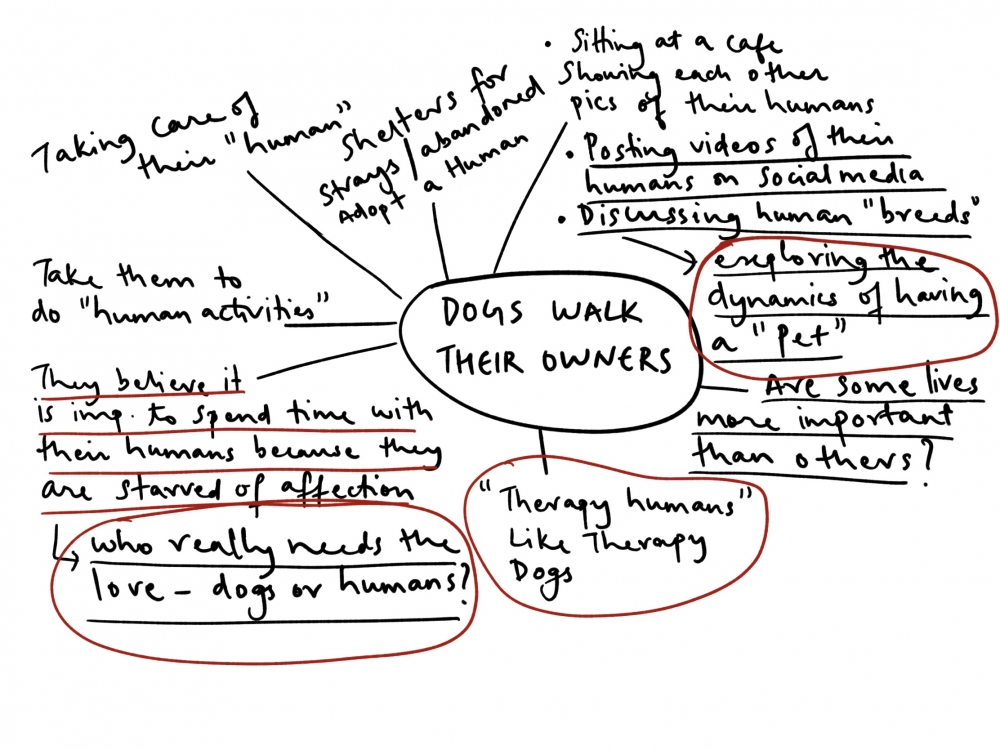 Taking care of
their "human"
Shelters for
strays/abandoned
Adopt a Human
• Sitting at a cafe
Showing each other
pics of their humans
• Posting videos of their
humans on social media
• Discussing human "breeds"
exploring the
dynamics of having
a "pet"
Are some lives
more important
than others?
DOGS WALK
THEIR OWNERS
Take them to
do "human activities"
They believe it
is imp. to spend time with
their humans because they
are starved of affection
who really needs the
love - dogs or humans?
"Therapy humans"
Like Therapy
Dogs